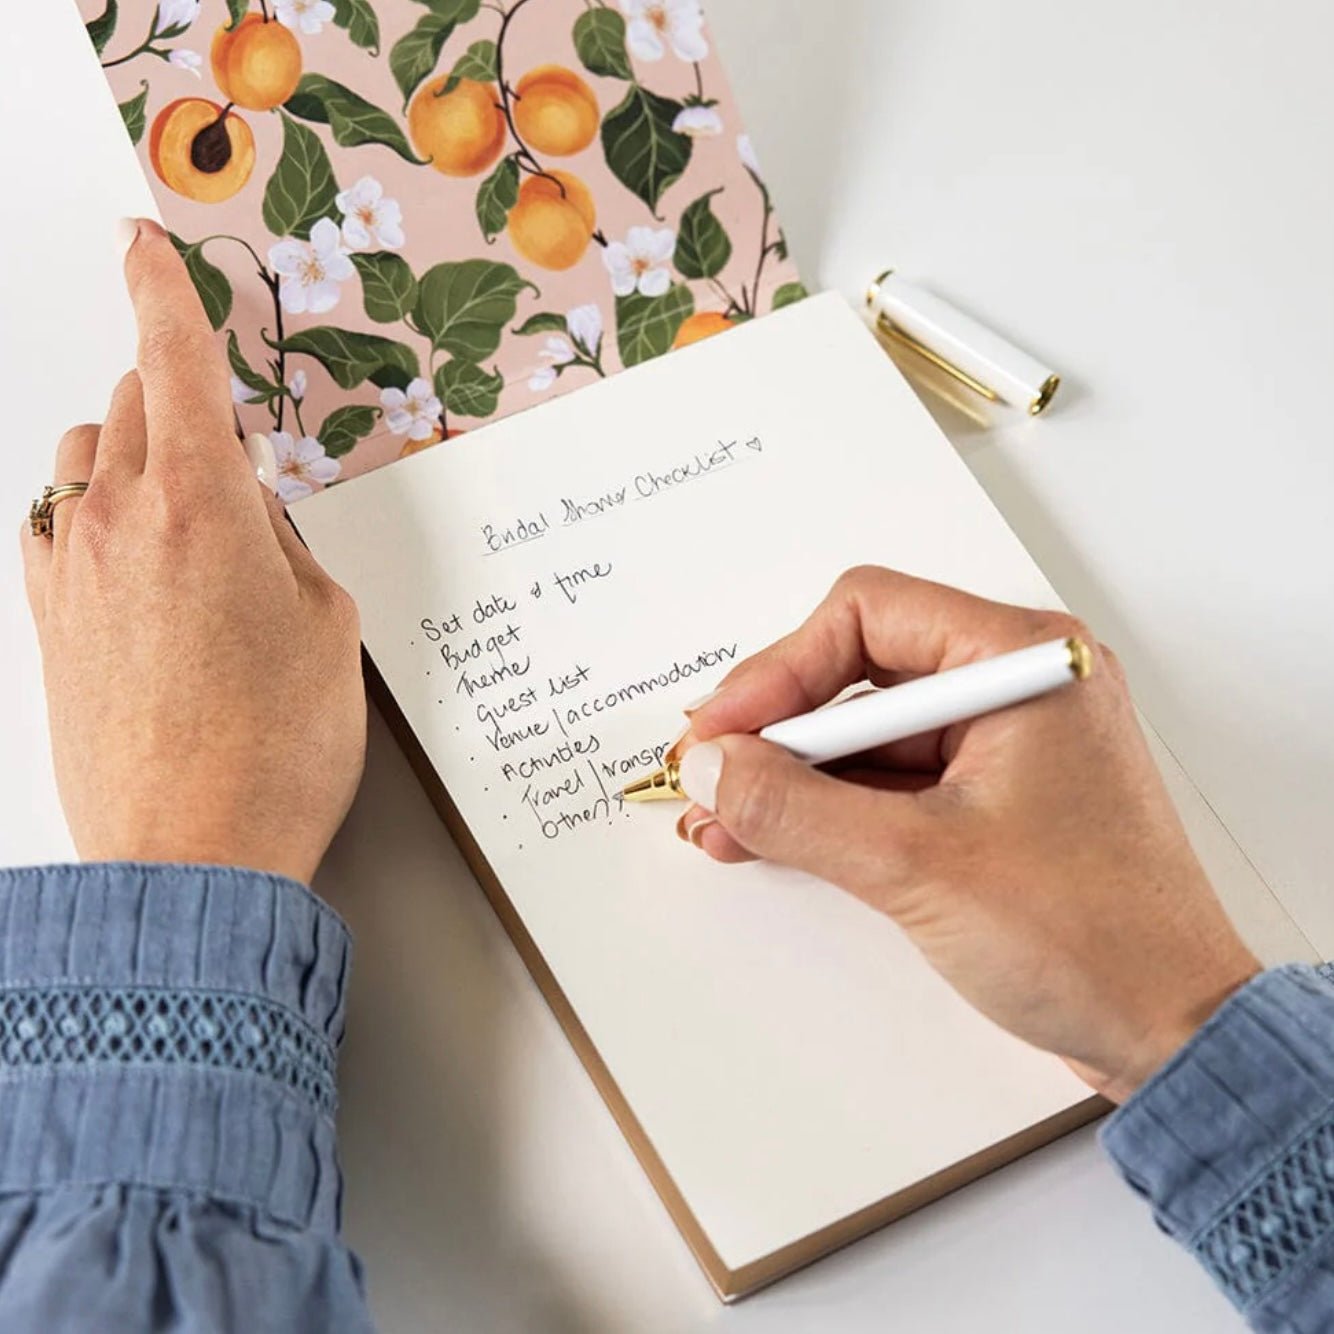 Bridal Shower Checklist ♡
· Set date & time
· Budget
· Theme
· Guest list
· Venue / accommodation
· Activities
· Travel / transp
· Other??